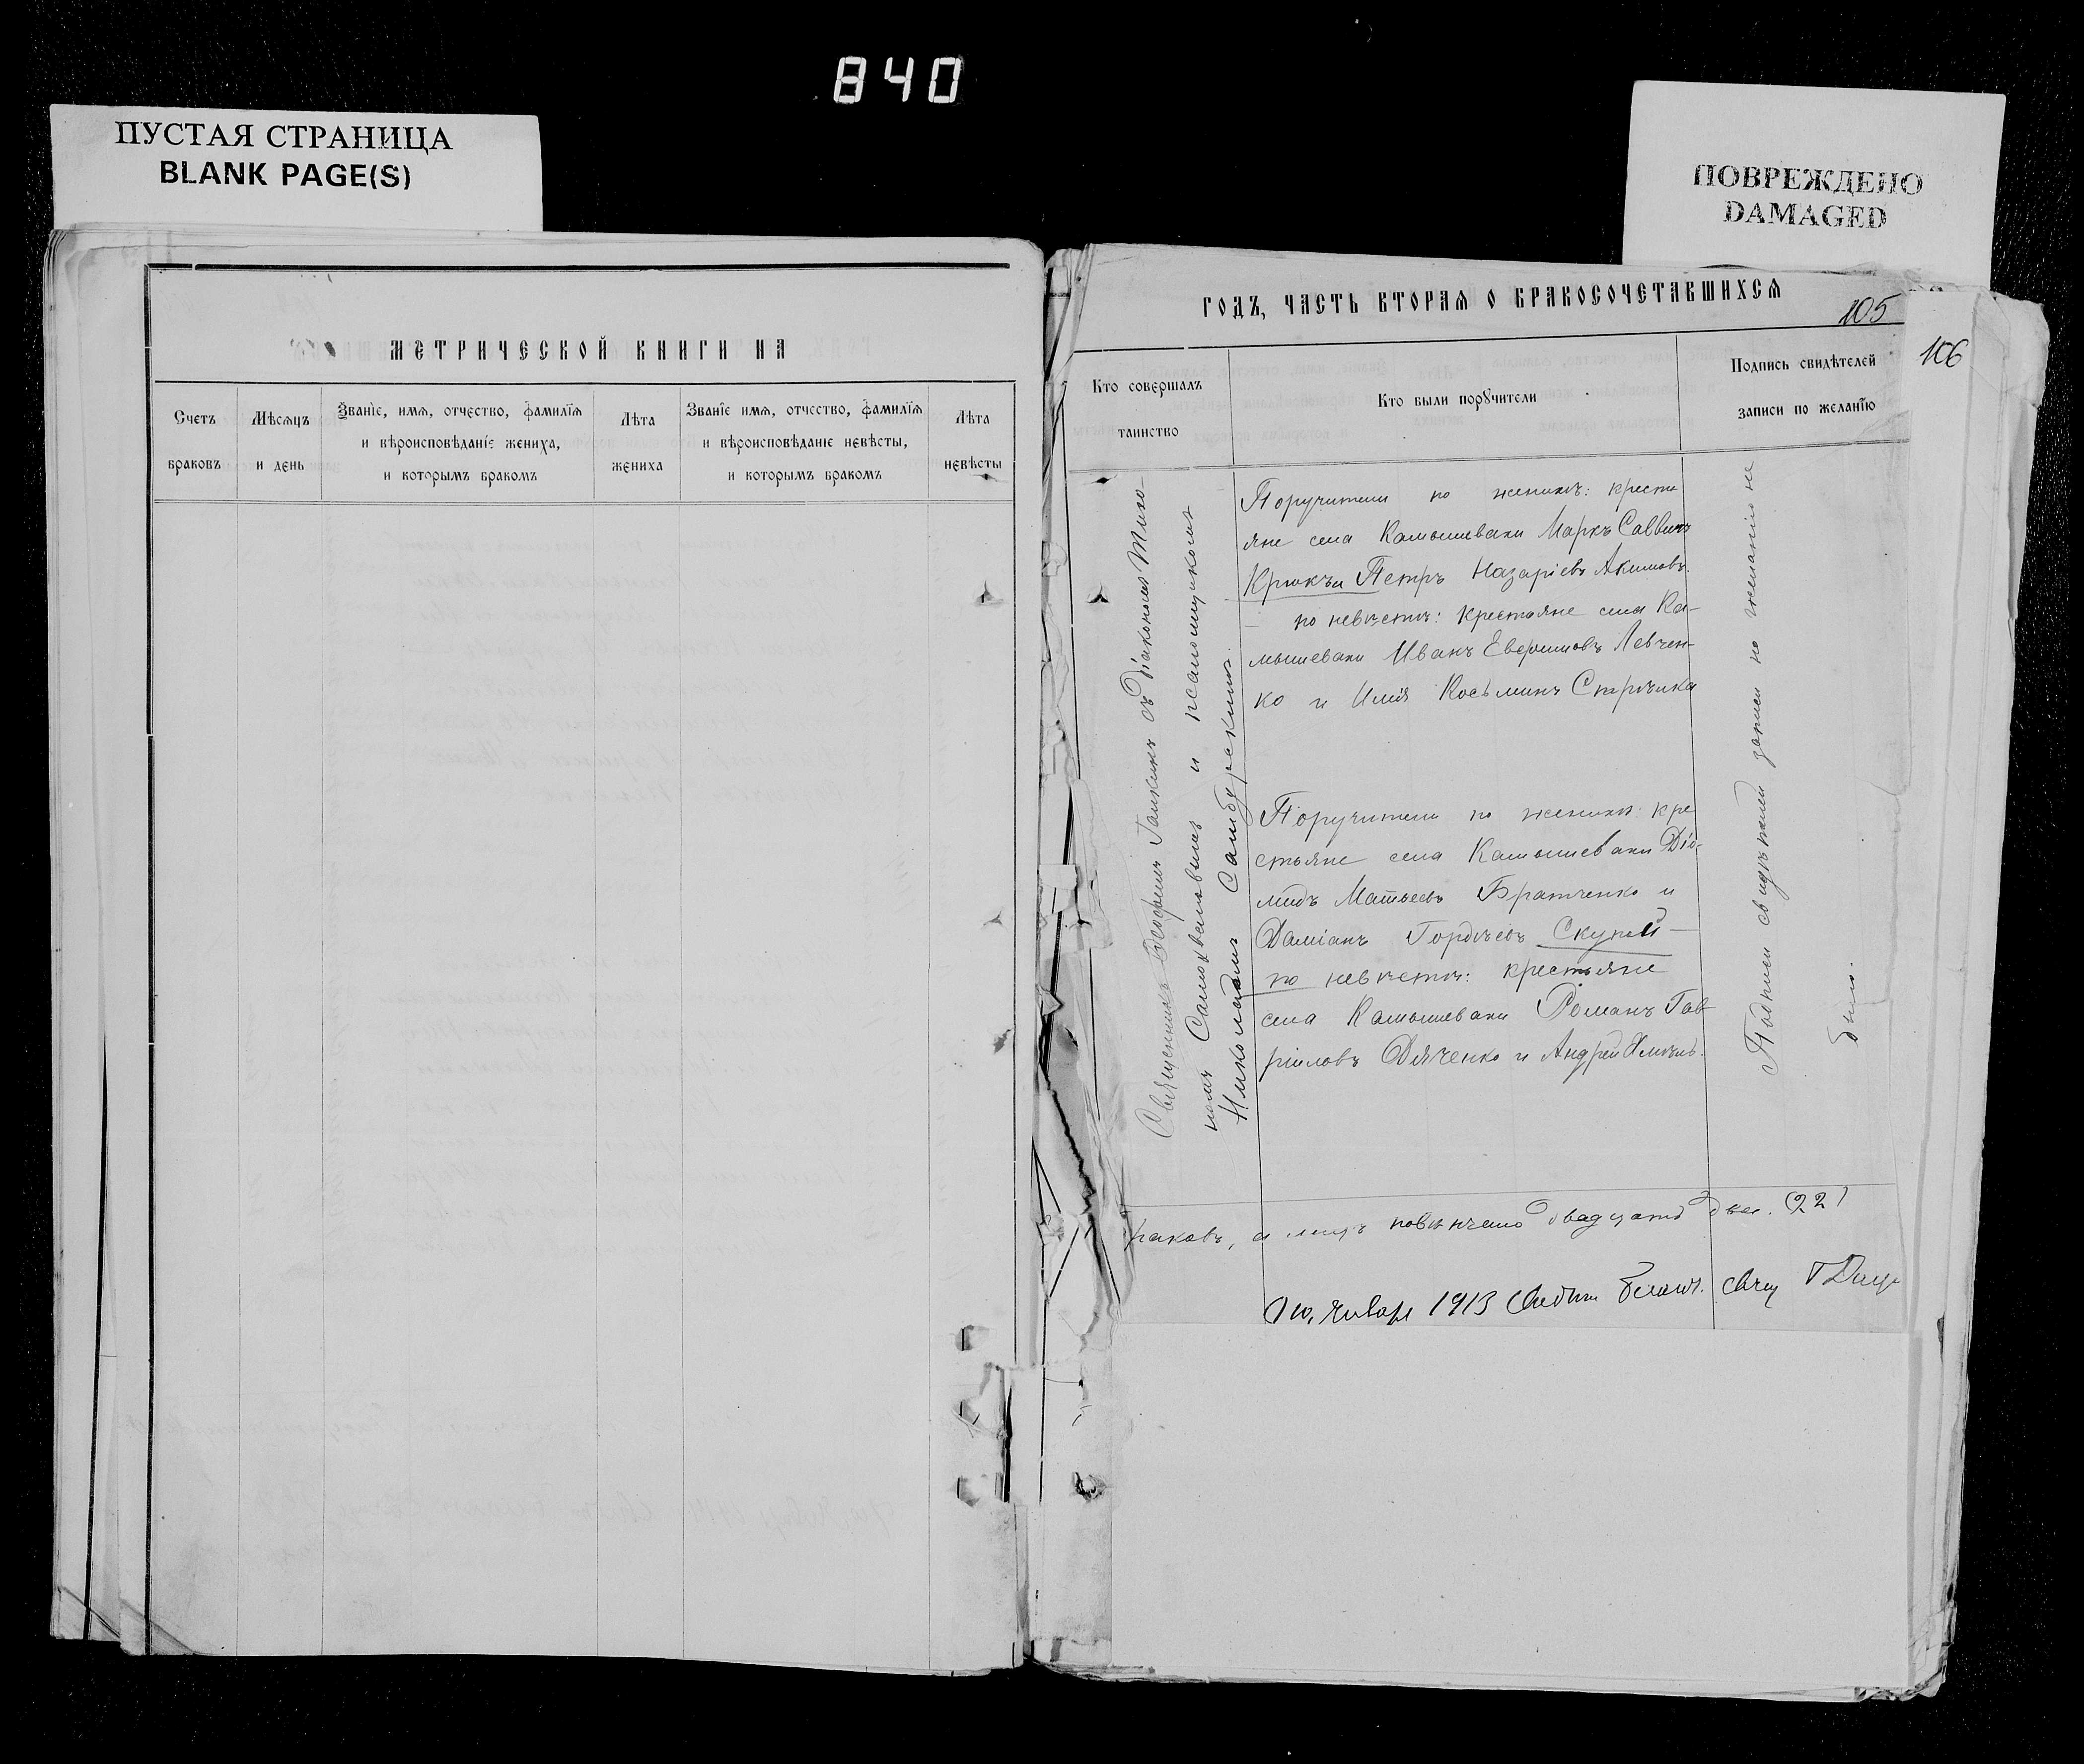 840
ПУСТАЯ СТРАНИЦА
BLANK PAGE(S)
ПОВРЕЖДЕНО
DAMAGED
МЕТРИЧЕСКОЙ КНИГИ НА
Счетъ браковъ
Мѣсяцъ и день
Званіе, имя, отчество, фамилія
и вѣроисповѣданіе жениха,
и которымъ бракомъ
Лѣта жениха
Званіе имя, отчество, фамилія
и вѣроисповѣданіе невѣсты,
и которымъ бракомъ
Лѣта невѣсты
ГОДЪ, ЧАСТЬ ВТОРАЯ О БРАКОСОЧЕТАВШИХСЯ
105
106
Кто совершалъ
таинство
Кто были поручители
Подпись свидѣтелей
записи по желанію
Священникъ Ѳеофилъ съ діакономъ Тихо-
номъ и псаломщикомъ
Николаемъ Самбурскимъ.
Поручители по женихѣ: крестья
яне села Камышевахи Маркъ Саввинъ
Крюкъ и Петръ Назаріевъ Акимовъ.
по невѣстѣ: крестьяне села Ка-
мышевахи Иванъ Левчен-
ко и Илія Косьминъ
Поручители по женихѣ: кре
стьяне села Камышевахи Діо-
мидъ Матѳеевъ Братченко и
Даміанъ Гордѣевъ Скупой
по невѣстѣ: крестьяне
села Камышевахи Романъ Гав
ріиловъ Дяченко и Андрей
Подписи свидѣтелей записи по желанію не
было.
раковъ, а лицъ повѣнчано двадцать два. (22)
1913